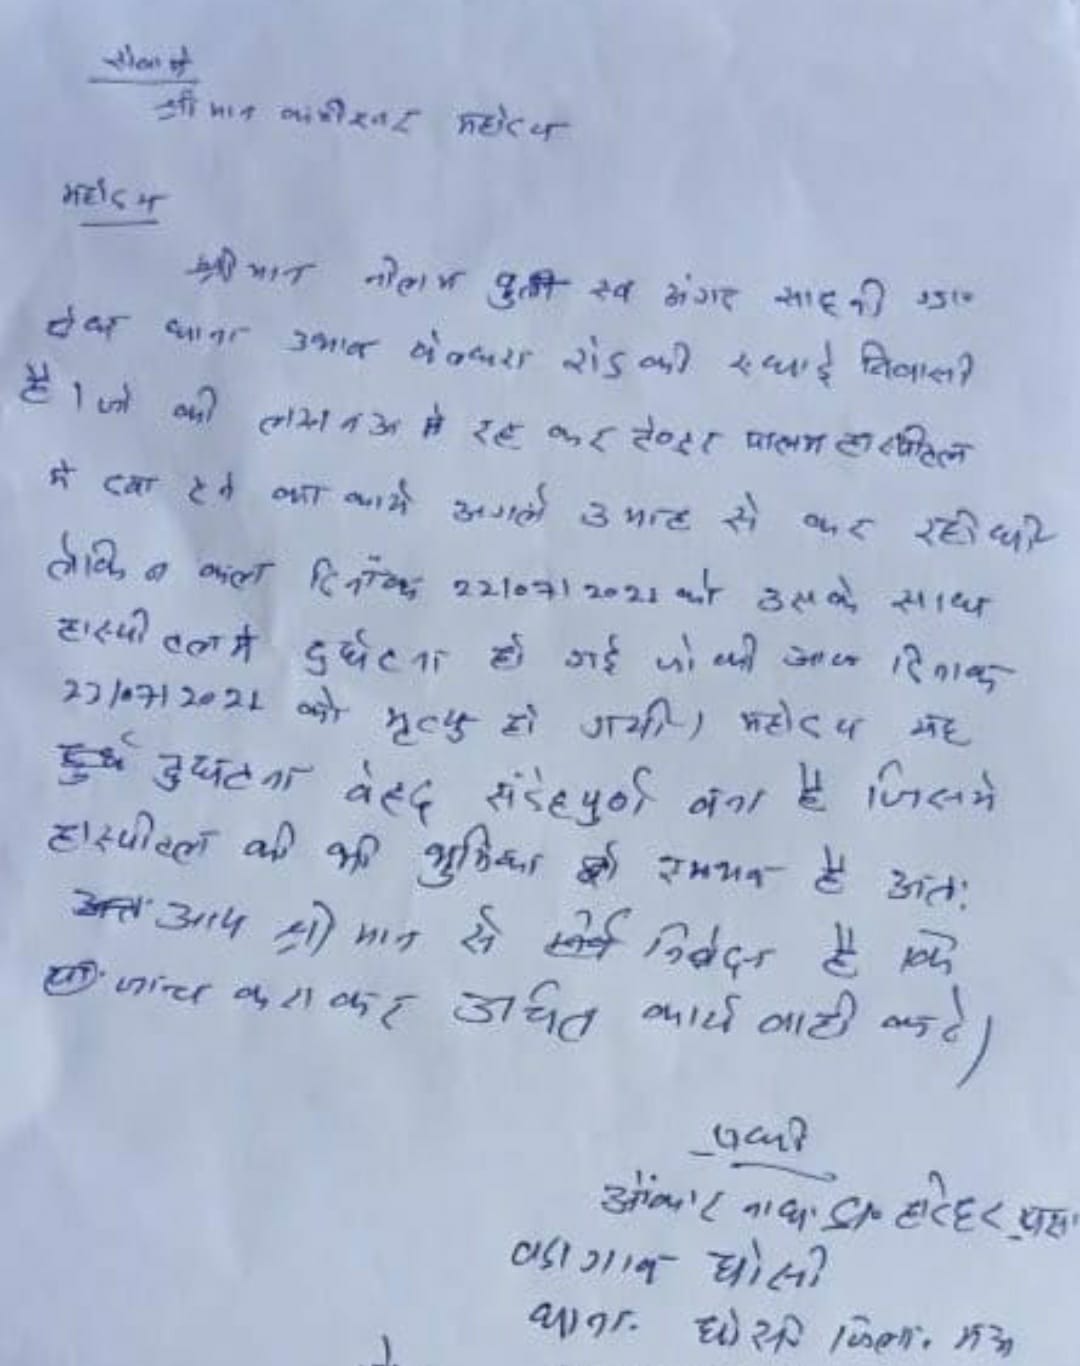 सेवा मे
श्री मान कमीश्नर महोदय
महोदय
श्री मान नीलम पुत्री स्व अंगद साहनी ग्रा०
थाना उभाव रोड की स्थाई निवासी
है। जो की लखनऊ मे रह कर टेण्डर पालम हास्पीटल
मे दवा देने का कार्य अगले 3 माह से कर रही थी
लेकिन कल दिनाँक 22/07/2021 को उसके साथ
हास्पीटल मे दुर्घटना हो गई जो की आज दिनाक
23/07/2021 को मृत्यु हो गयी। महोदय यह
दुर्घटना बेहद संदेहपुर्ण बना है जिसमे
हास्पीटल की भी भुमिका सम्भव है अतः
आप श्री मान से निवेदन है कि
जांच करा कर उचित कार्य वाही करे।
प्रार्थी
ओंकार नाथ S/o हरिहर
बडा गाव घोसी
थाना. घोसी जिला. मऊ